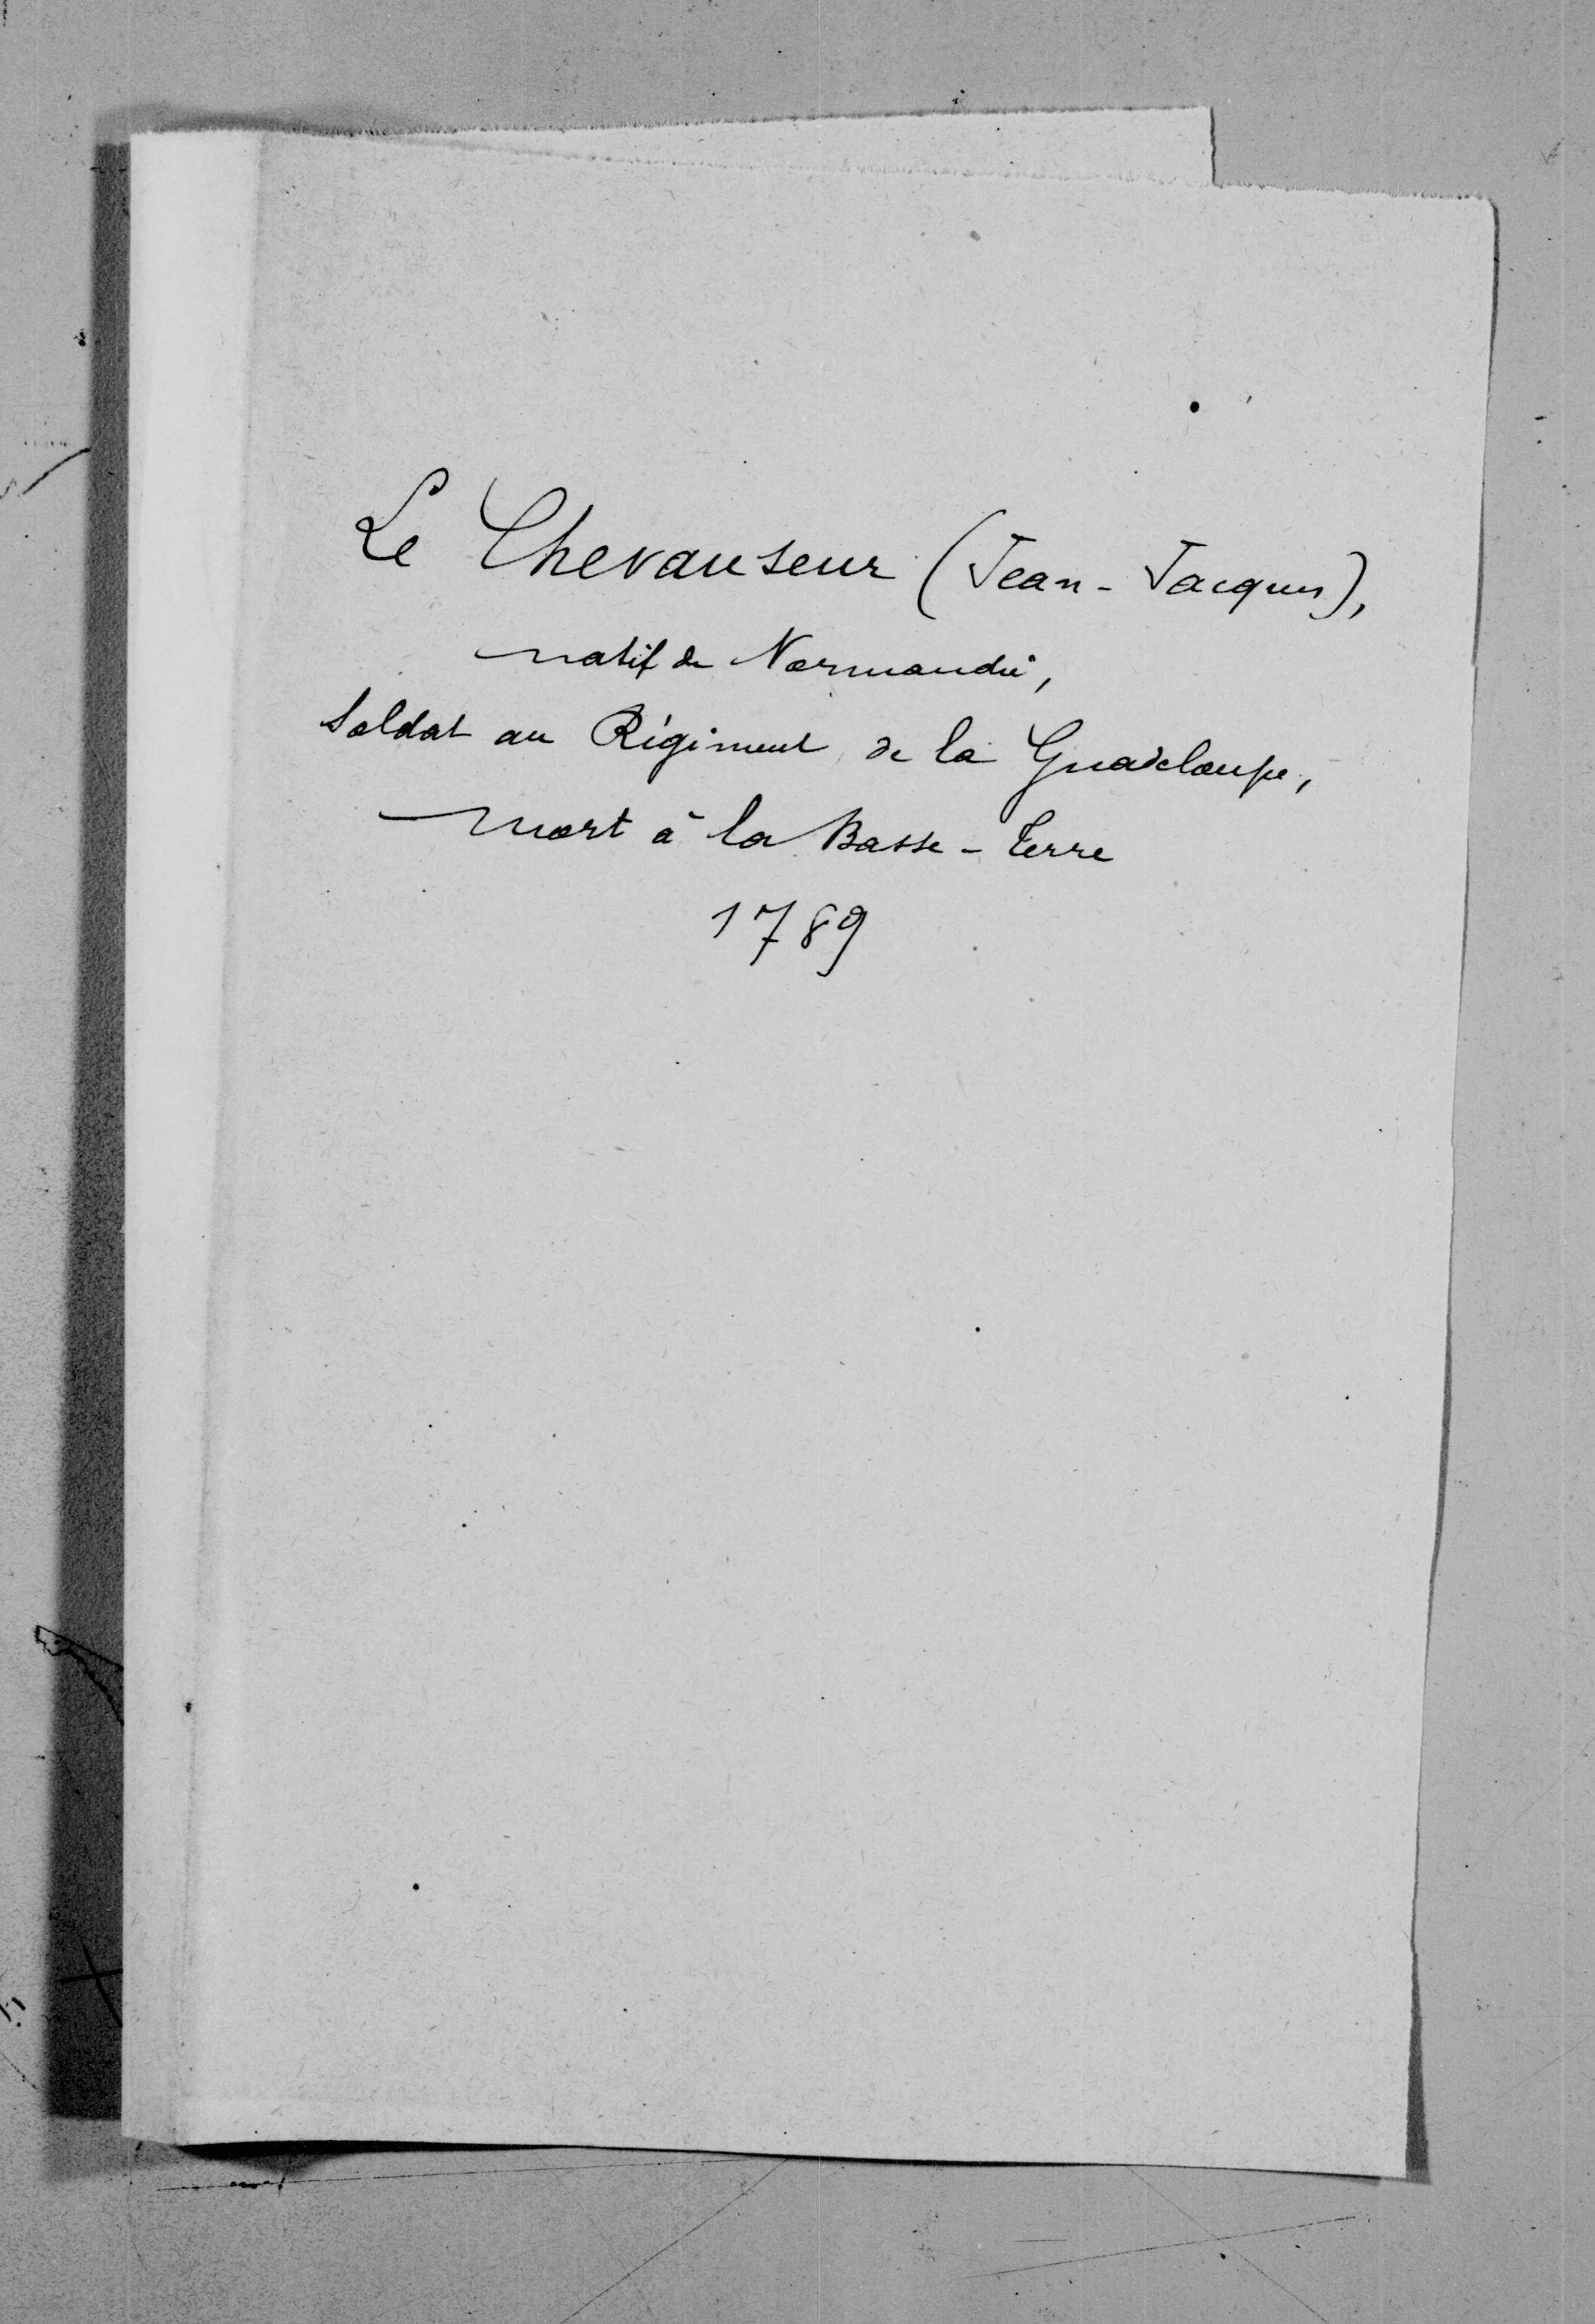 Le Chevauseur (Jean-Jacques),
natif de Normandie,
Soldat au Régiment de la Guadeloupe,
mort à la Basse-Terre
1789